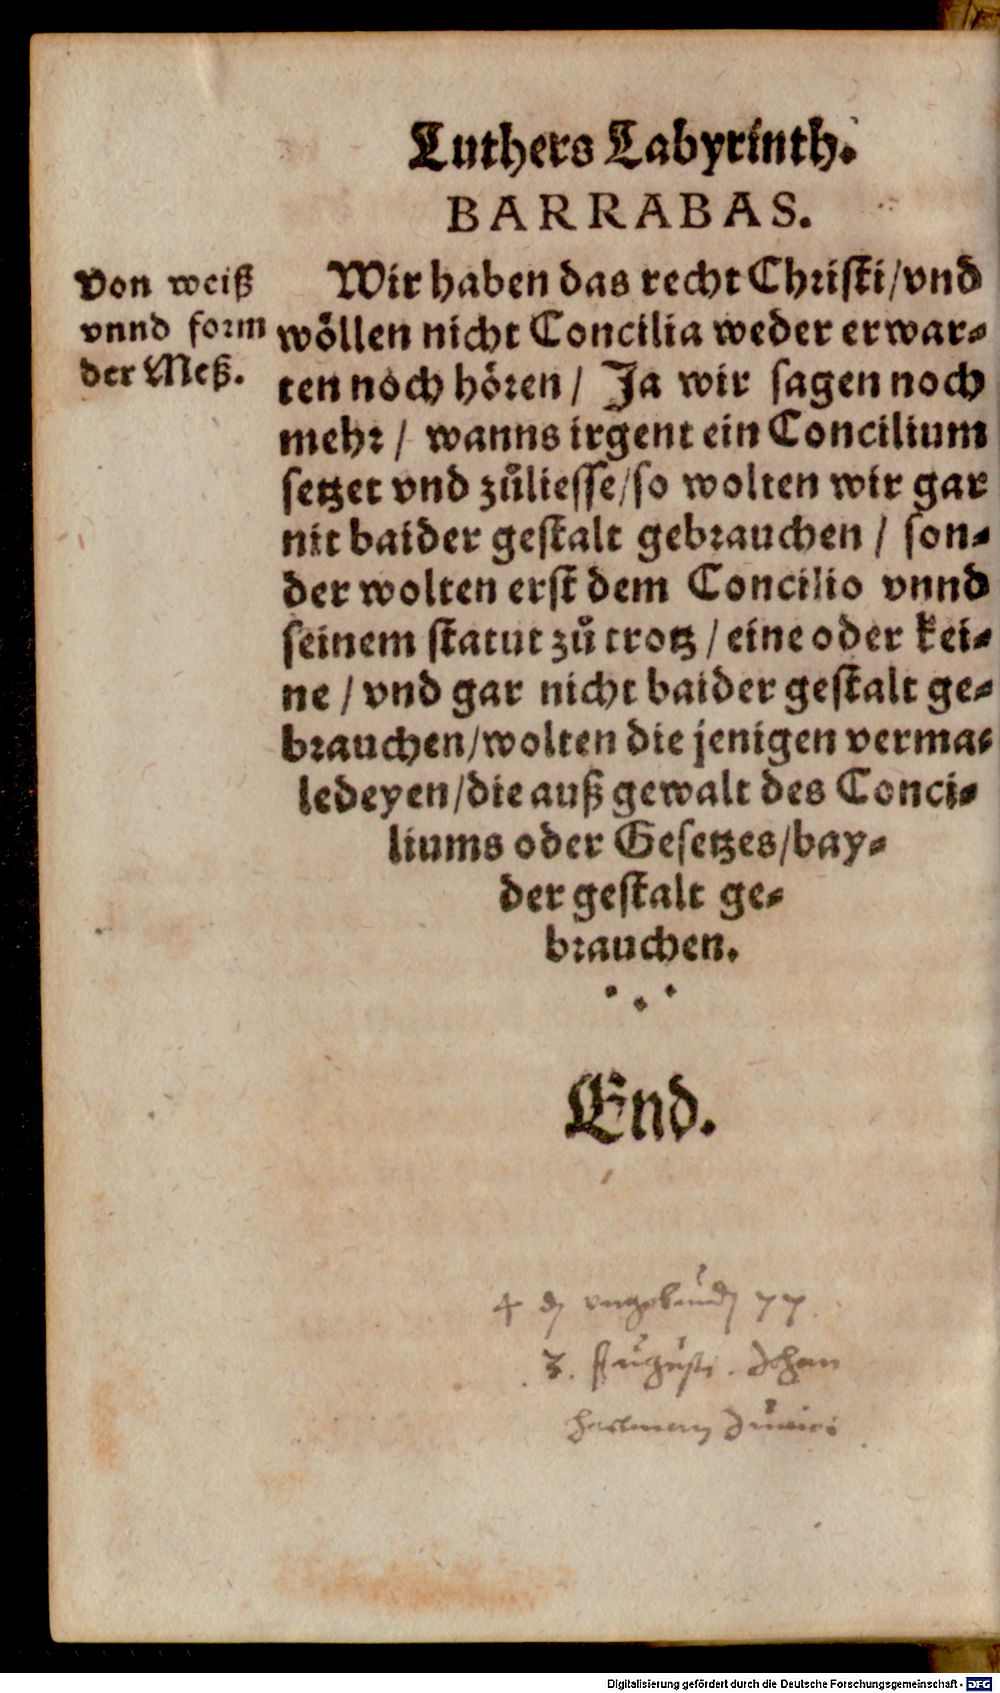 Luthers Labyrinth.
BARRABAS.
Von weiß
vnnd form
der Meß.
Wir haben das recht Christi/vnd
wöllen nicht Concilia weder erwar⸗
ten noch hören/ Ja wir sagen noch
mehr/ wanns irgent ein Concilium
setzet vnd zůliesse/so wolten wir gar
nit baider gestalt gebrauchen/ son⸗
der wolten erst dem Concilio vnnd
seinem statut zů trotz/eine oder kei⸗
ne/vnd gar nicht baider gestalt ge⸗
brauchen/wolten die jenigen verma⸗
ledeyen/die auß gewalt des Conci⸗
liums oder Gesetzes/bay⸗
der gestalt ge⸗
brauchen.
End.
4 ungebund 77
3. Augusti. Johan
Hartman
Digitalisierung gefördert durch die Deutsche Forschungsgemeinschaft - DFG